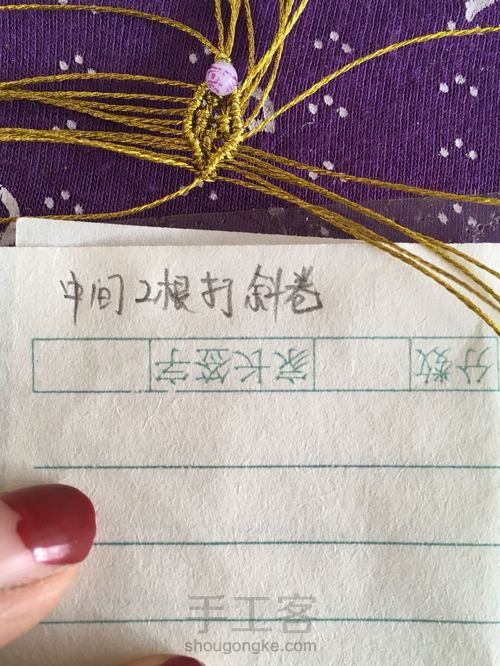 中间2根打斜卷
分数 家长签字
手工客
shougongke.com